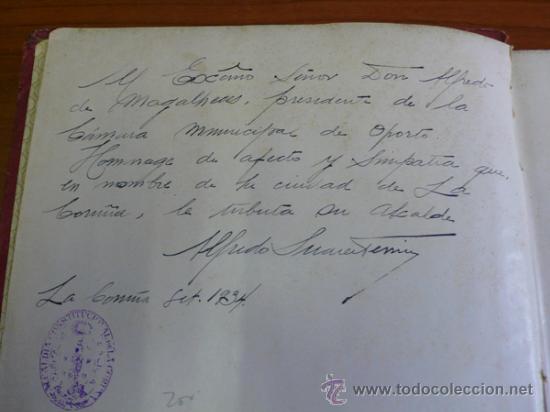 Al Excmo Señor Don Alfredo
de Magalhaes, presidente de la
Cámara Municipal de Oporto.
Homnage de afecto y Simpatia que,
en nombre de la ciudad de La
Coruña, le tributa su Alcalde
Alfredo Suarez Ferrin
La Coruña Set. 1934.
ALCALDIA CONSTITUCIONAL DE LA CORUÑA
200
© todocoleccion
www.todocoleccion.net